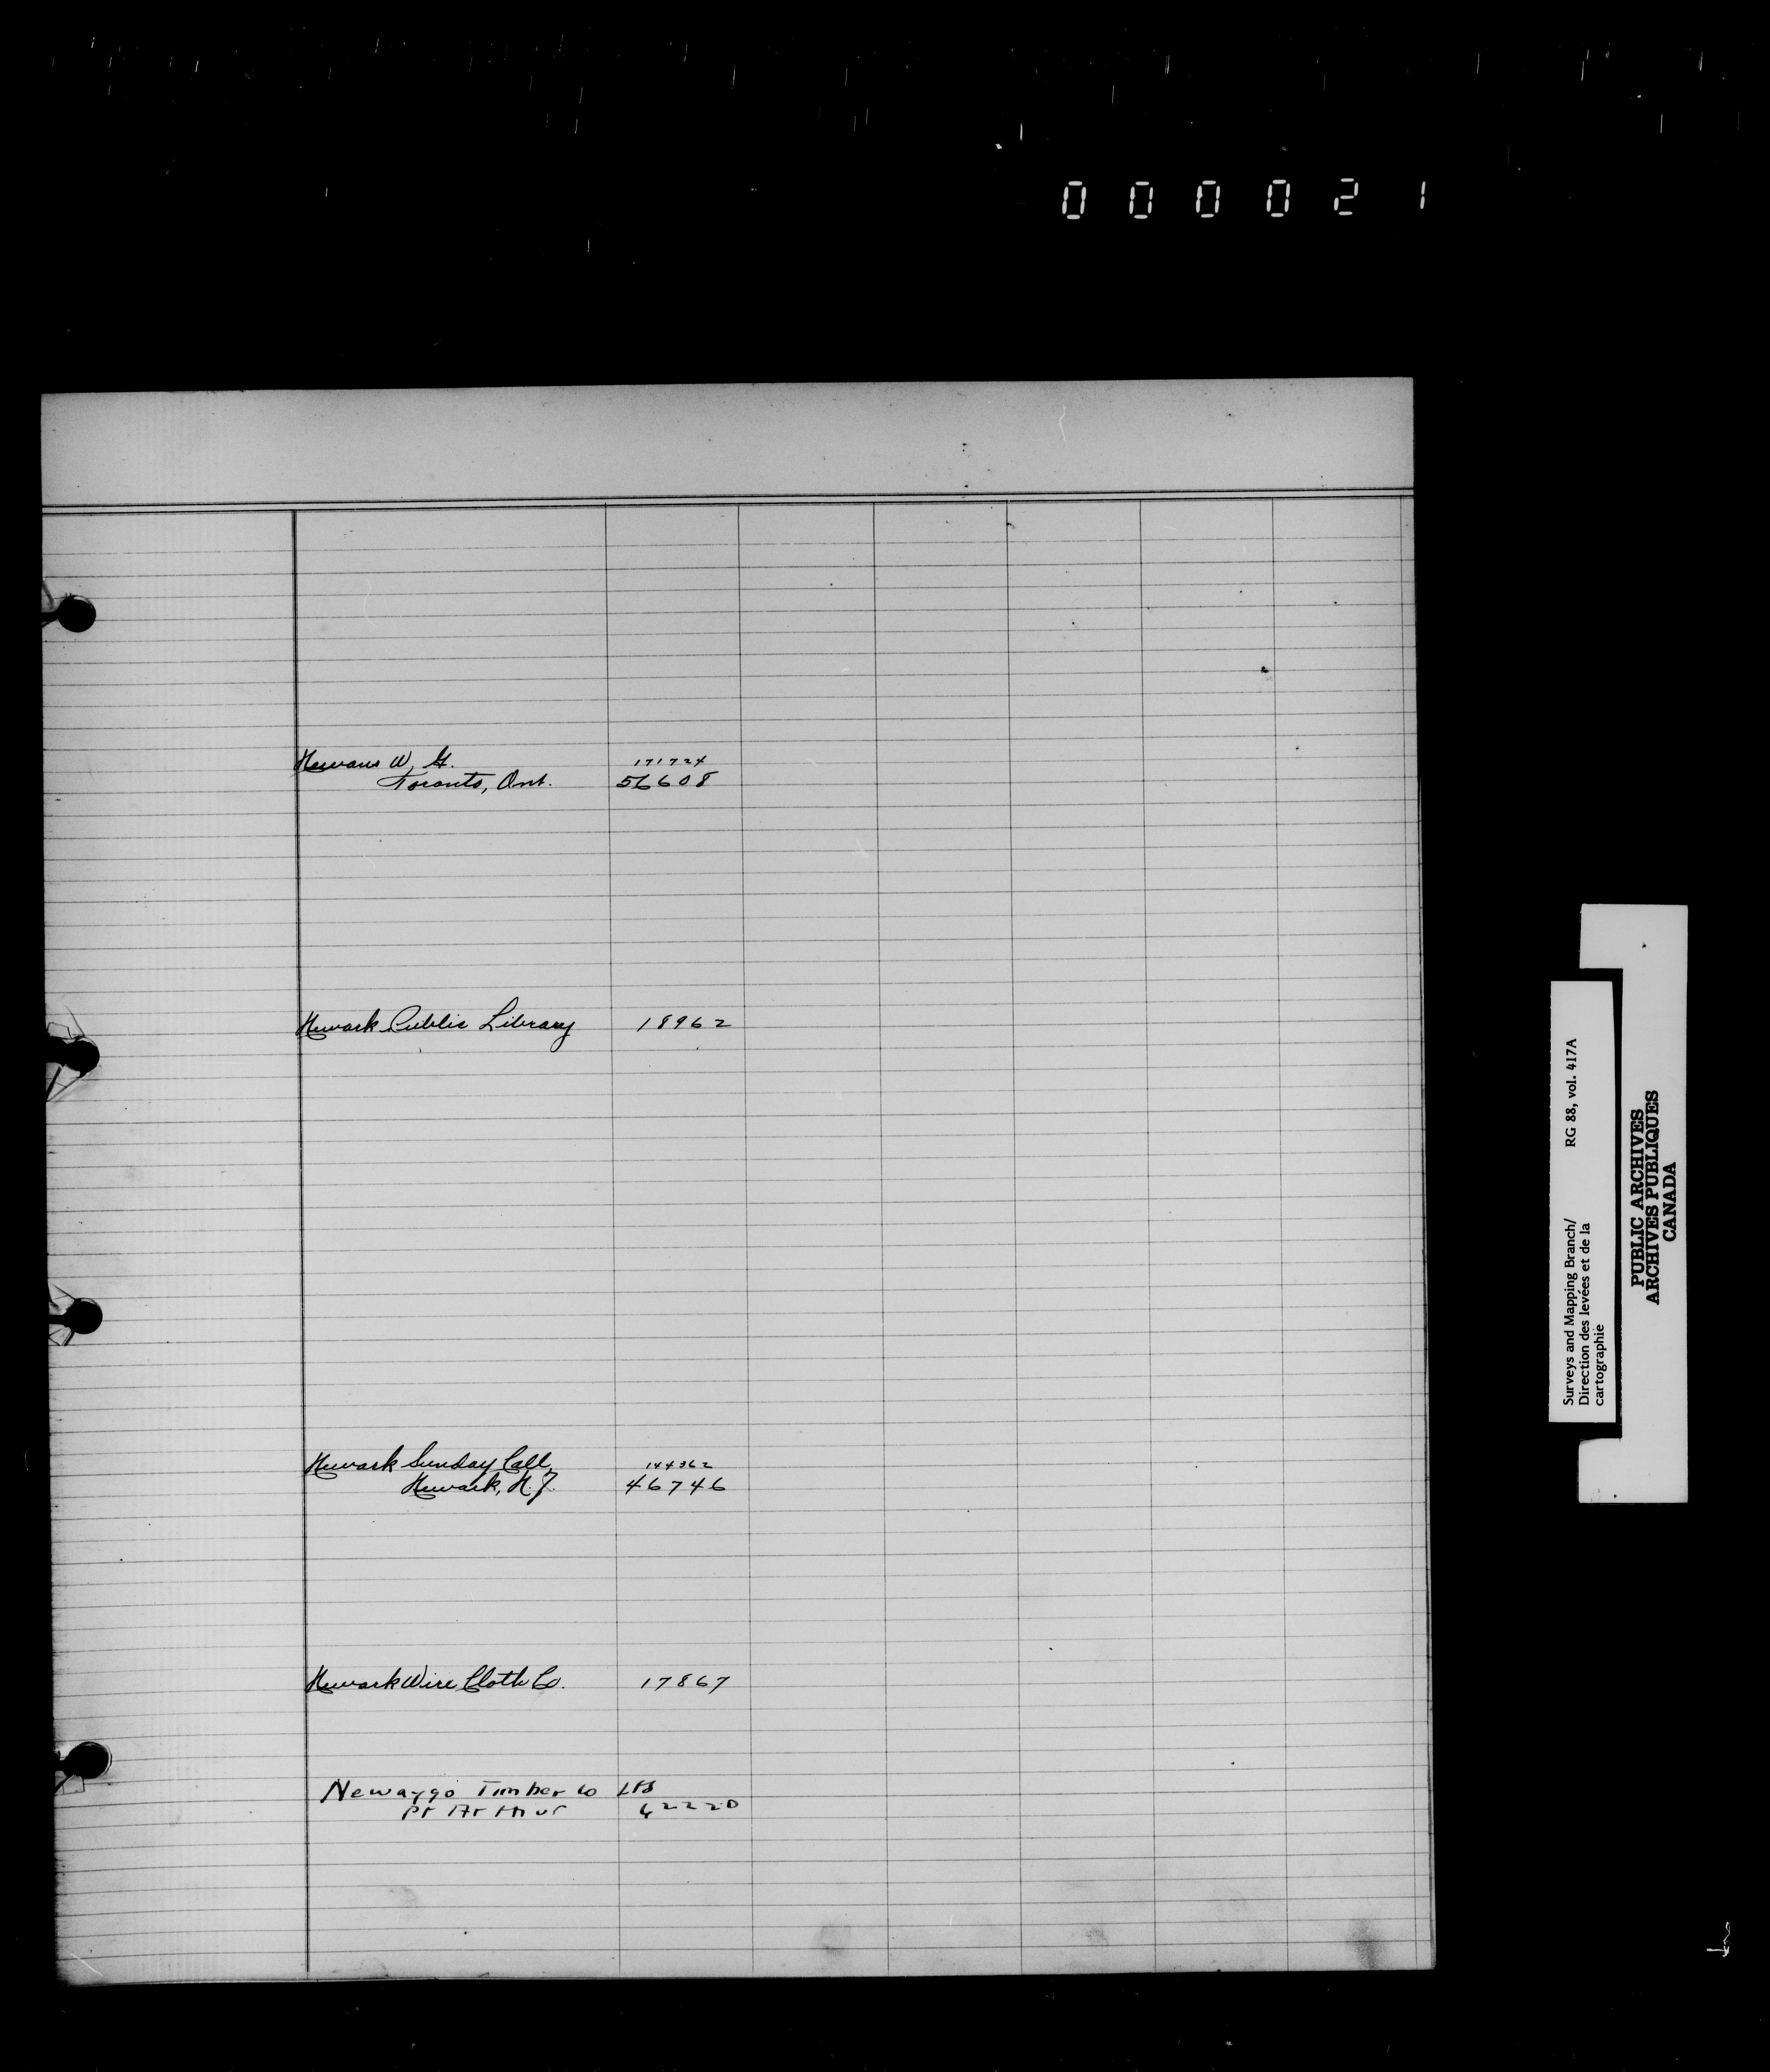 000021
Newans W. G. 171724
Toronto, Ont. 56608
Newark Public Library 18962
Newark Sunday Call, 144362
Newark, N.J. 46746
Newark Wire Cloth Co. 17867
Newaygo Timber Co Ltd
Pt Arthur 42220
Surveys and Mapping Branch/ RG 88, vol. 417A
Direction des levées et de la
cartographie
PUBLIC ARCHIVES
ARCHIVES PUBLIQUES
CANADA